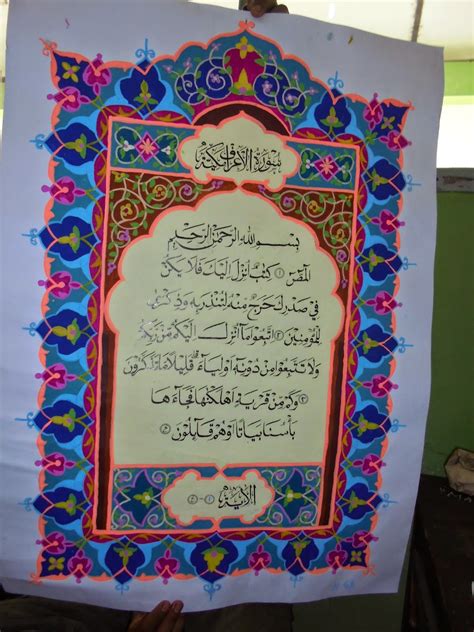 سورة الأعراف مكية
بسم الله الرحمن الرحيم
المص ١ كتب أنزل إليك فلا يكن
في صدرك حرج منه لتنذر به وذكرى
للمؤمنين ٢ اتبعوا ما أنزل إليكم من ربكم
ولا تتبعوا من دونه أولياء قليلا ما تذكرون
٣ وكم من قرية أهلكنها فجاءها
بأسنا بياتا أو هم قائلون ٤
الآية ١-٤